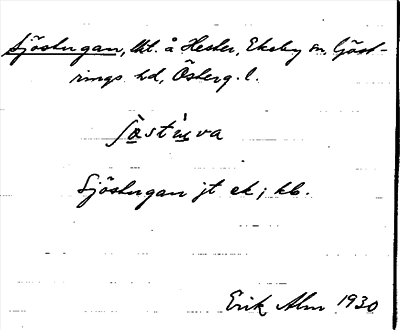 Sjöstugan, lht. å Hester, Ekeby sn, Göst-
rings hd, Österg. l.
ʃö̀stùva
Sjöstugan jt ek; kb.
Erik Alm 1930